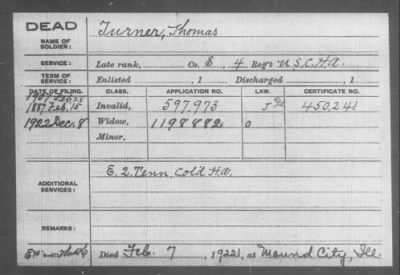 DEAD
NAME OF SOLDIER: Turner, Thomas
SERVICE: Late rank, Co. E, 4 Reg't U.S.C.H.A.
TERM OF SERVICE: Enlisted , 1 Discharged , 1
DATE OF FILING. CLASS. APPLICATION NO. LAW. CERTIFICATE NO.
1887 Feb. 15 Invalid, 597.973 450.241
1922 Dec. 8 Widow, 1198882 0
Minor,
ADDITIONAL SERVICES: E. 2. Tenn Col'd H.A.
REMARKS:
Died Feb. 7, 1922, at Mound City, Ill.